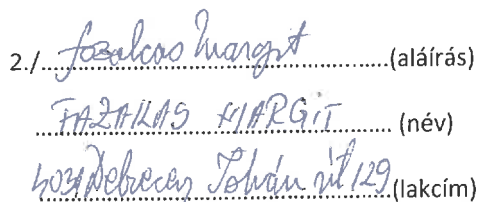 2./ Fazakas Margit (aláírás)
FAZAKAS MARGIT (név)
4031 Debrecen István út 129 (lakcím)